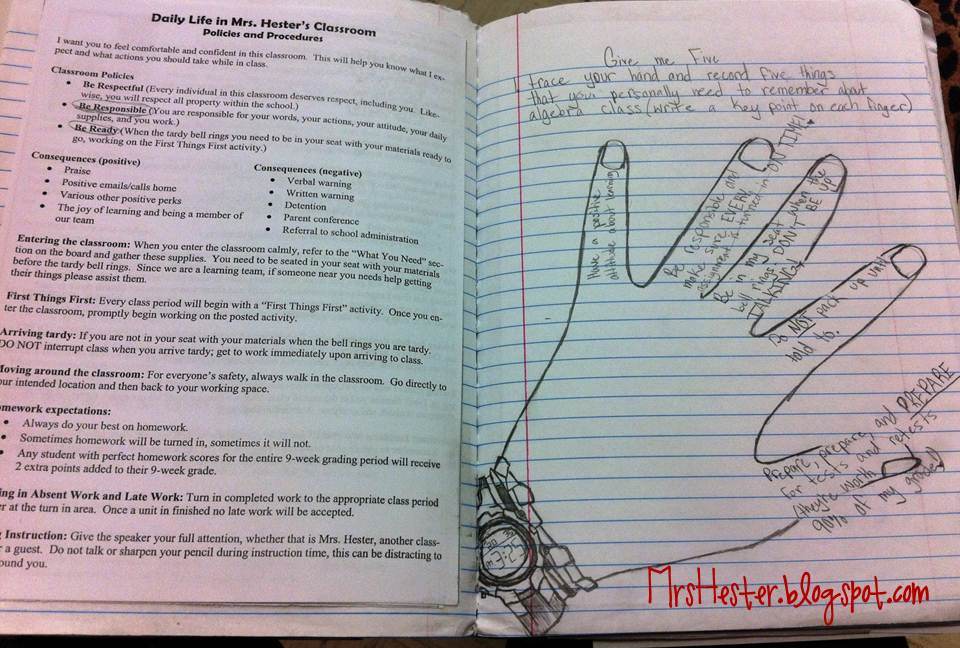 Daily Life in Mrs. Hester's Classroom
Policies and Procedures
I want you to feel comfortable and confident in this classroom. This will help you know what I ex-
pect and what actions you should take while in class.
Classroom Policies
• Be Respectful (Every individual in this classroom deserves respect, including you. Like-
wise, you will respect all property within the school.)
• Be Responsible (You are responsible for your words, your actions, your attitude, your daily
supplies, and you work.)
• Be Ready (When the tardy bell rings you need to be in your seat with your materials ready to
go, working on the First Things First activity.)
Consequences (positive)
• Praise
• Positive emails/calls home
• Various other positive perks
• The joy of learning and being a member of
our team
Consequences (negative)
• Verbal warning
• Written warning
• Detention
• Parent conference
• Referral to school administration
Entering the classroom: When you enter the classroom calmly, refer to the "What You Need" sec-
tion on the board and gather these supplies. You need to be seated in your seat with your materials
before the tardy bell rings. Since we are a learning team, if someone near you needs help getting
their things please assist them.
First Things First: Every class period will begin with a "First Things First" activity. Once you en-
ter the classroom, promptly begin working on the posted activity.
Arriving tardy: If you are not in your seat with your materials when the bell rings you are tardy.
DO NOT interrupt class when you arrive tardy; get to work immediately upon arriving to class.
Moving around the classroom: For everyone's safety, always walk in the classroom. Go directly to
our intended location and then back to your working space.
omework expectations:
• Always do your best on homework.
• Sometimes homework will be turned in, sometimes it will not.
• Any student with perfect homework scores for the entire 9-week grading period will receive
2 extra points added to their 9-week grade.
ing in Absent Work and Late Work: Turn in completed work to the appropriate class period
er at the turn in area. Once a unit in finished no late work will be accepted.
g Instruction: Give the speaker your full attention, whether that is Mrs. Hester, another class-
r a guest. Do not talk or sharpen your pencil during instruction time, this can be distracting to
ound you.
Give me Five
trace your hand and record five things
that you personally need to remember about
algebra class (write a key point on each finger)
Have a positive
attitude about learning
Be responsible and
make sure EVERY
assignment is turned in ON TIME!
Be in my seat when the
bell rings. DON'T BE
TALKING!
Do NOT pack up until
told to.
Prepare, prepare, and PREPARE
for tests and retests
(they're worth
90% of my grade)
3:23
MrsHester.blogspot.com